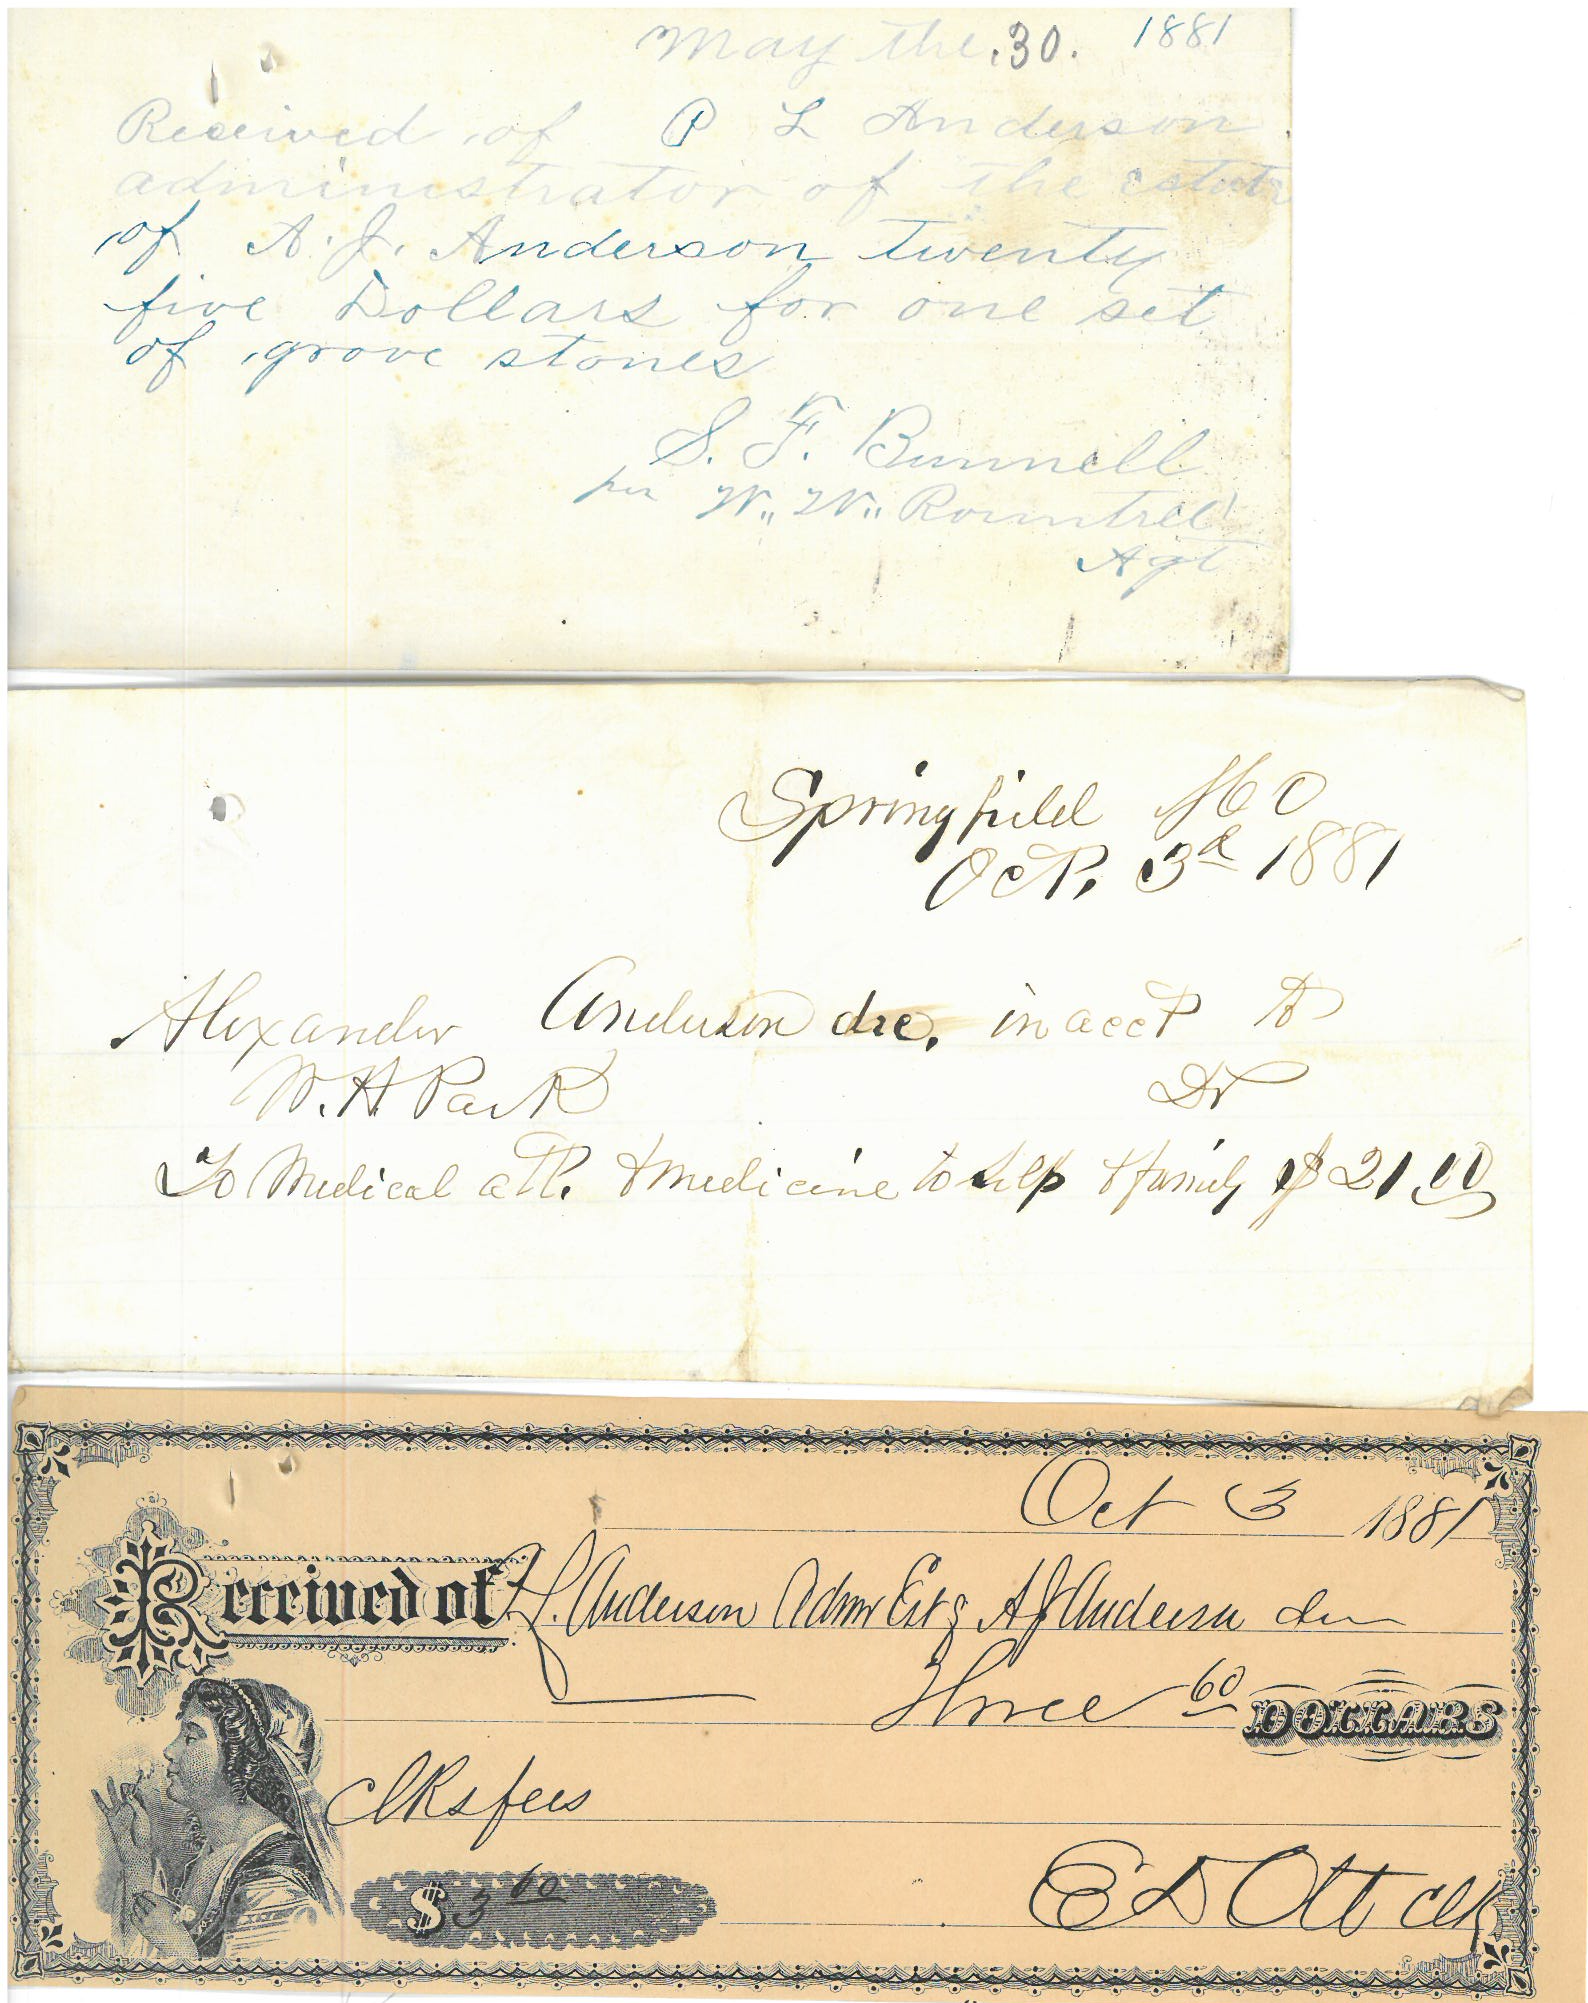 May the 30. 1881
Received of P L Anderson
administrator of the estate
of A. J. Anderson twenty
five Dollars for one set
of grave stones
S. F. Bunnell
per W. W. Rountree
Agt
Springfield MO
Oct. 3d 1881
Alexander Anderson dec. in acct to
W. H. Park Dr
To Medical att. & medicine to self & family $21.00
Oct 3 1881
Received of P L. Anderson Admr Est of A J Anderson dec
Three 60 DOLLARS
Clks fees
$ 3 60
E D Ott Clk